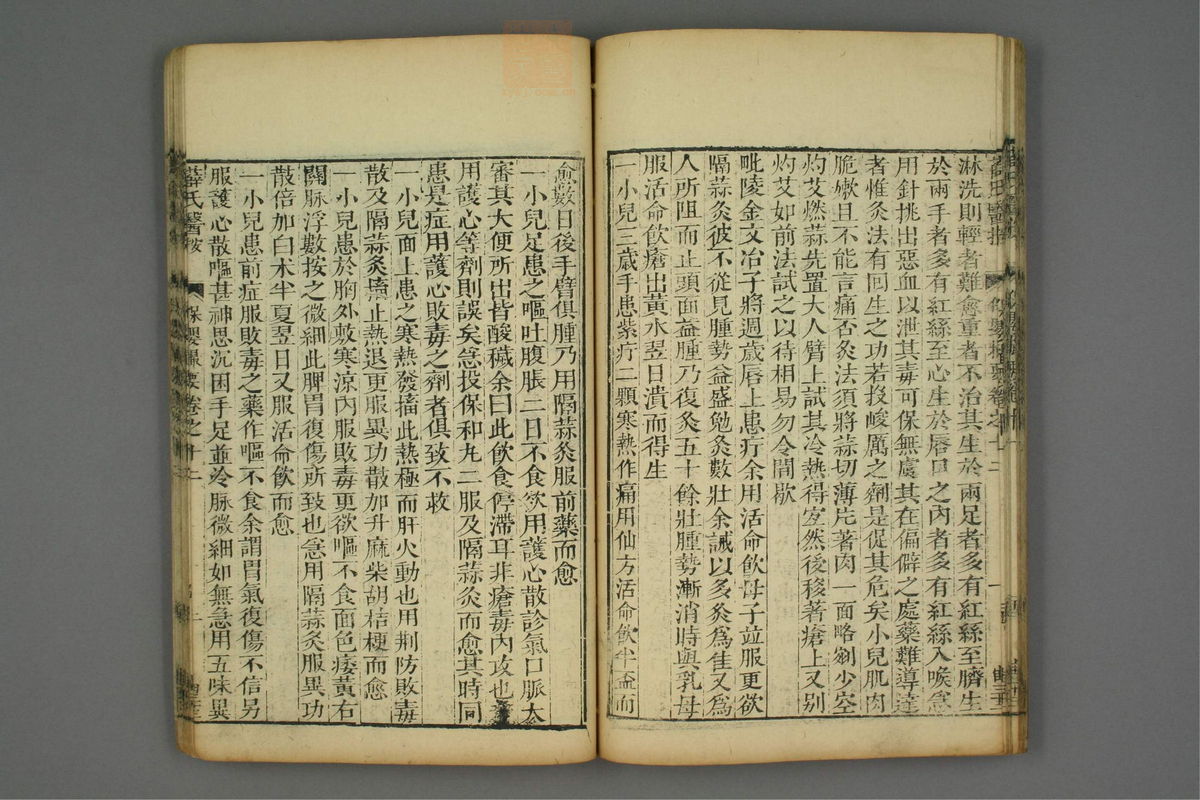 淋洗則輕者難愈重者不治其生於兩足者多有紅絲至臍生
於兩手者多有紅絲至心生於唇口之內者多有紅絲入喉急
用針挑出惡血以泄其毒可保無虞其在偏僻之處藥難導達
者惟灸法有回生之功若投峻厲之劑是促其危矣小兒肌肉
脆嫩且不能言痛否灸法須將蒜切薄片著肉一面略剜少空
灼艾燃蒜先置大人臂上試其冷熱得宜然後移著瘡上又別
灼艾如前法試之以待相易勿令間歇
毗陵金文冶子將週歲唇上患疔余用活命飲母子並服更欲
隔蒜灸彼不從見腫勢益盛勉灸數壯余誡以多灸為佳又為
人所阻而止頭面益腫乃復灸五十餘壯腫勢漸消時與乳母
服活命飲瘡出黃水翌日潰而得生
一小兒三歲手患紫疔二顆寒熱作痛用仙方活命飲半盃而
愈數日後手臂俱腫乃用隔蒜灸服前藥而愈
一小兒足患之嘔吐腹脹二日不食欲用護心散診氣口脈大
審其大便所出皆酸穢余曰此飲食停滯耳非瘡毒內攻也
用護心等劑則誤矣急投保和丸二服及隔蒜灸而愈其時同
患是症用護心敗毒之劑者俱致不救
一小兒面上患之寒熱發搐此熱極而肝火動也用荊防敗毒
散及隔蒜灸搐止熱退更服異功散加升麻柴胡桔梗而愈
一小兒患於胸外敷寒涼內服敗毒更欲嘔不食面色痿黃右
關脈浮數按之微細此脾胃復傷所致也急用隔蒜灸服異功
散倍加白朮半夏翌日又服活命飲而愈
一小兒患前症服敗毒之藥作嘔不食余謂胃氣復傷不信另
服護心散嘔甚神思沉困手足並冷脈微細如無急用五味異
薛氏醫按
保嬰撮要卷之十二